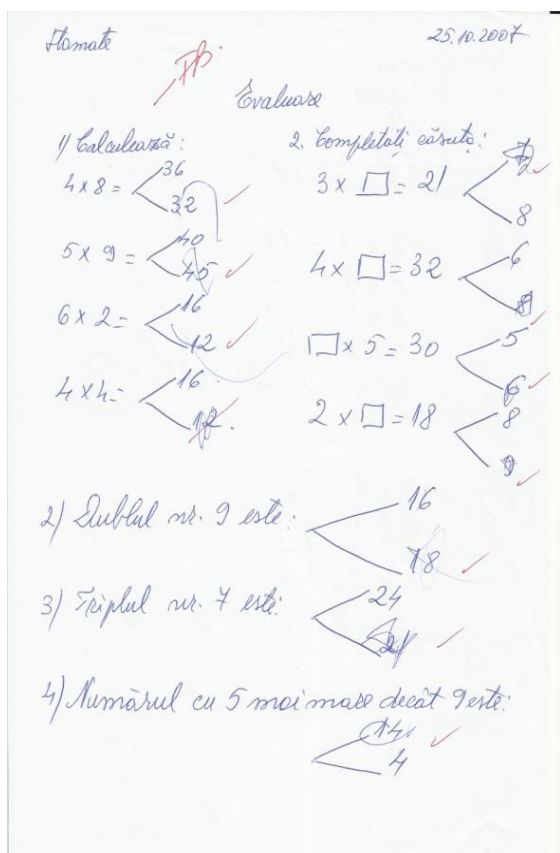 Stamate 25.10.2007
FB.
Evaluare
1) Calculează:
4 x 8 = 36
32
5 x 9 = 40
45
6 x 2 = 16
12
4 x 4 = 16
12
2. Completați căsuța:
3 x □ = 21 7
8
4 x □ = 32 6
8
□ x 5 = 30 5
6
2 x □ = 18 8
9
2) Dublul nr. 9 este: 16
18
3) Triplul nr. 7 este: 24
21
4) Numărul cu 5 mai mare decât 9 este:
14
4